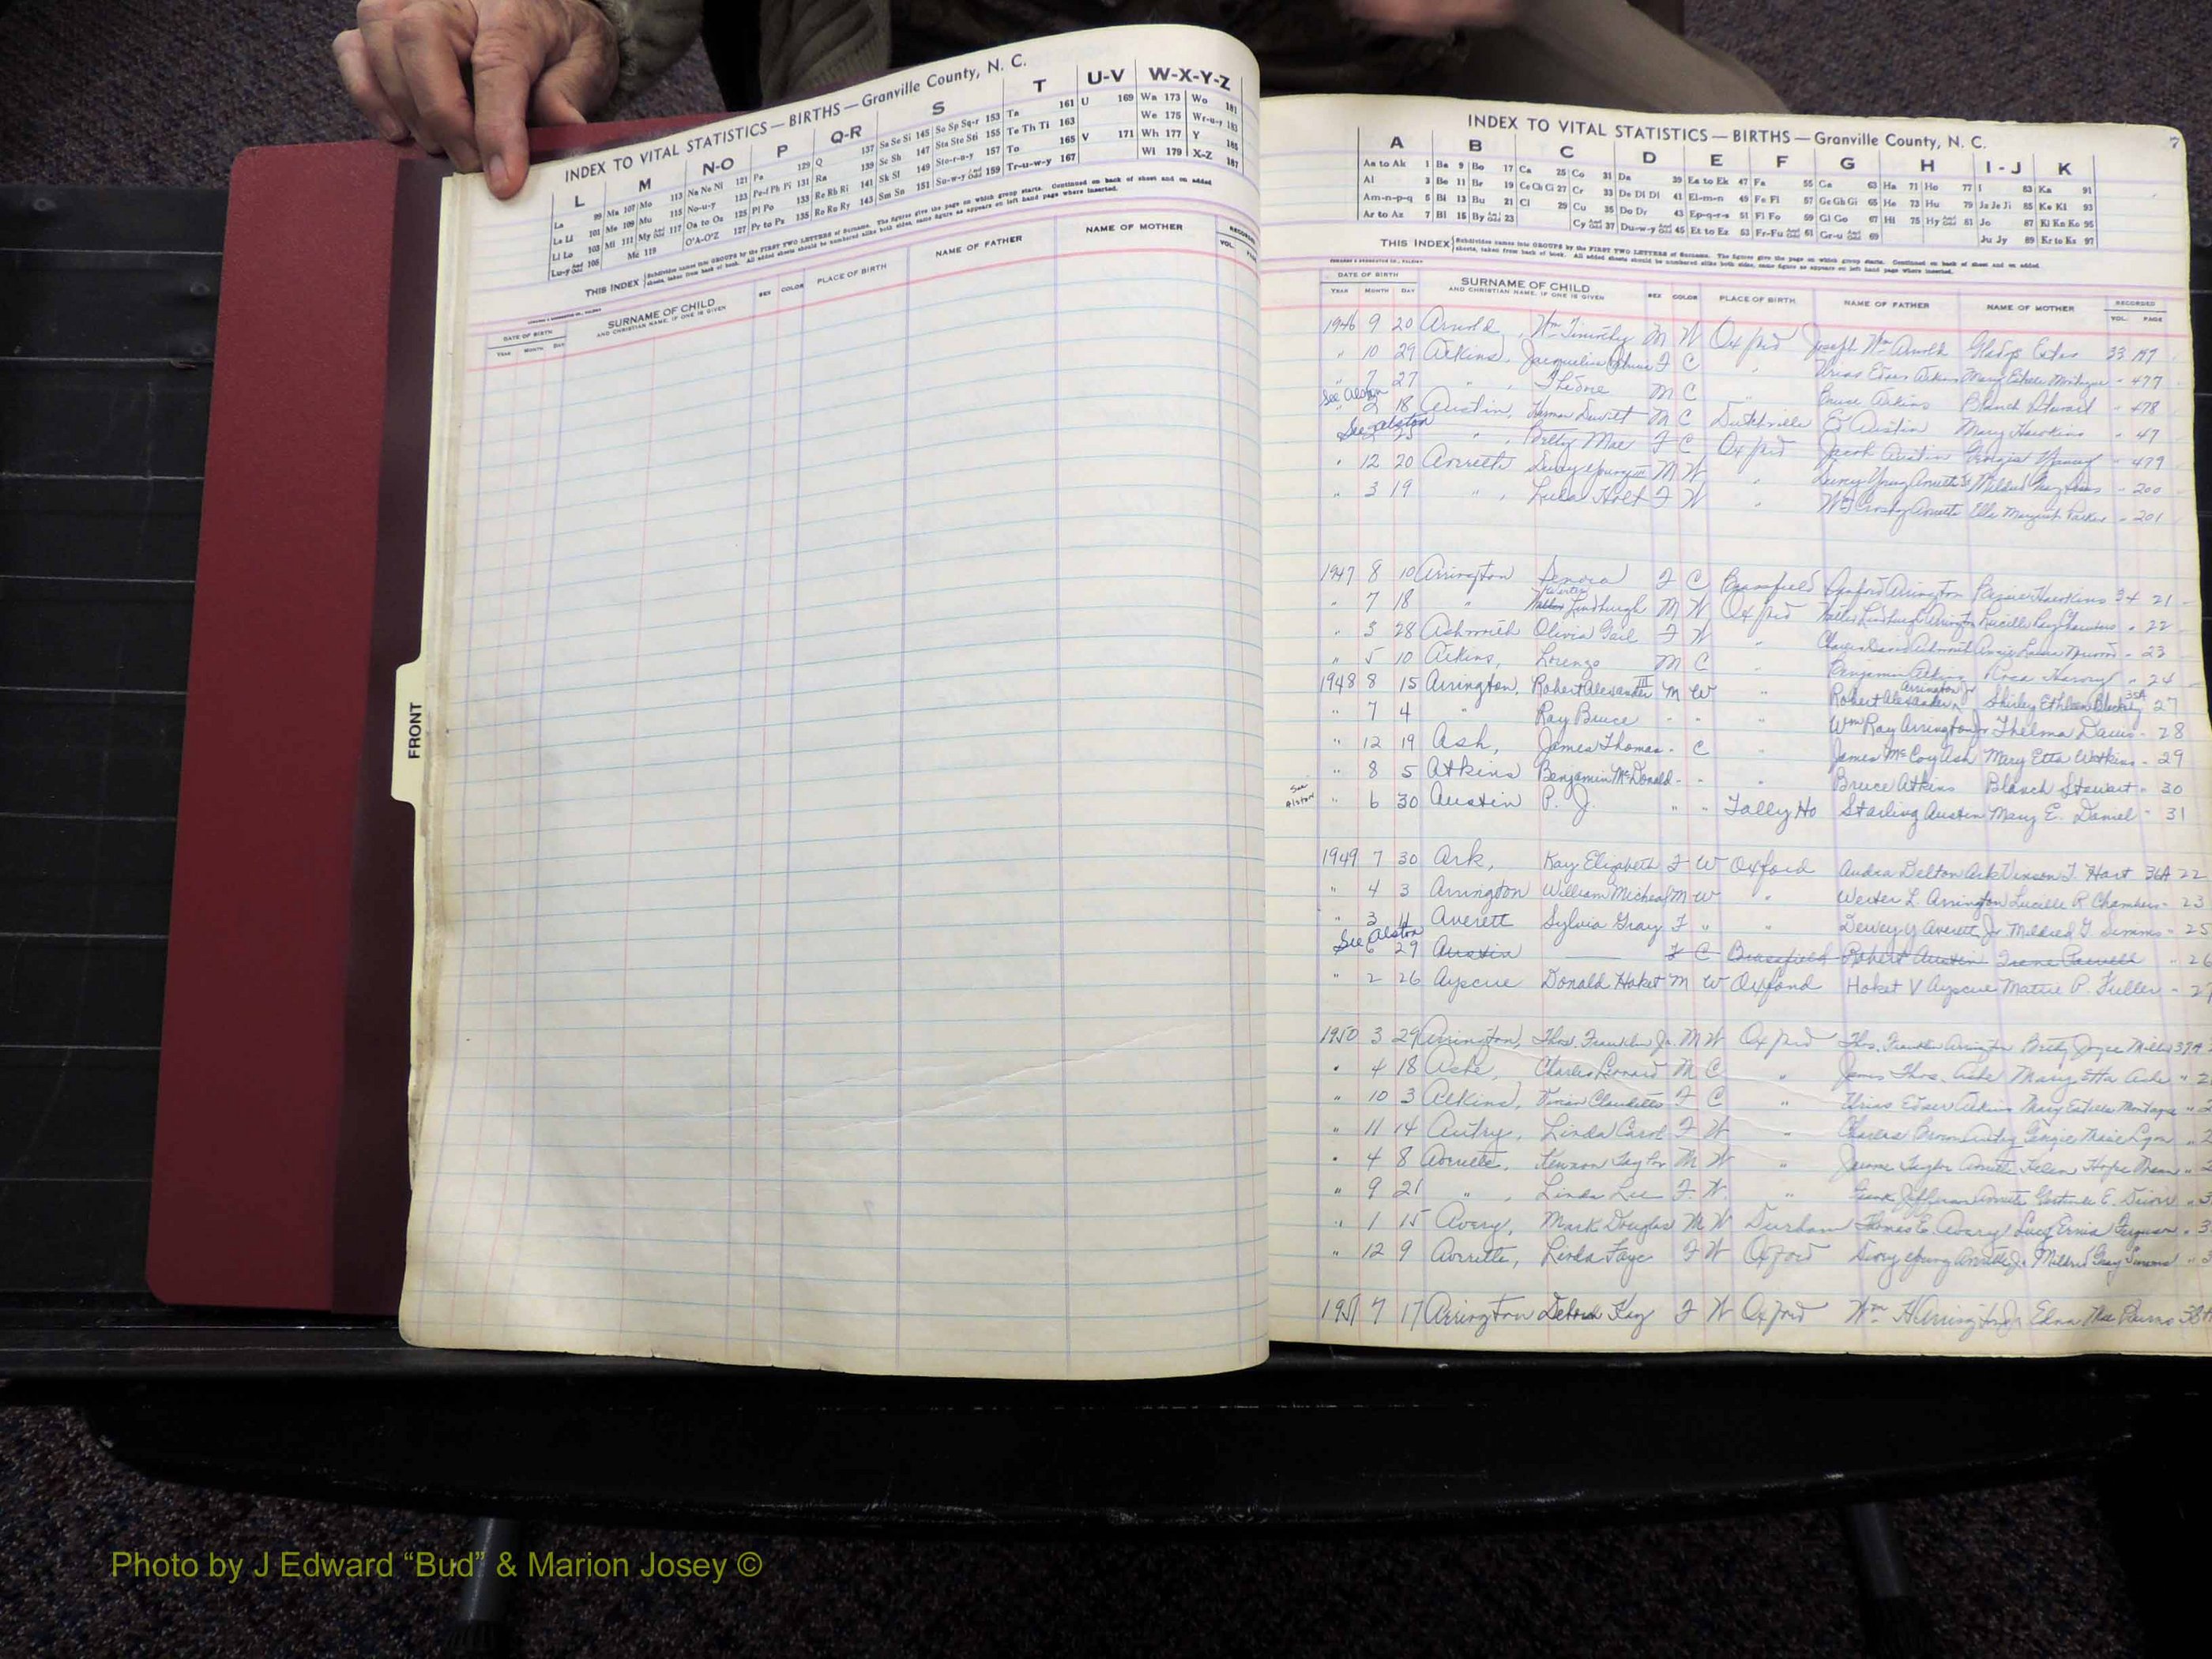 INDEX TO VITAL STATISTICS — BIRTHS — Granville County, N. C.
L M N-O P Q-R S T U-V W-X-Y-Z
La 89 Ma 107 Mo 113 Na Ne Ni 121 Pa 129 Q 137 Sa Se Si 145 So Sp Sq-r 153 Ta 161 U 169 Wa 173 Wo 181
La Li 101 Me 109 Mu 115 No-u-y 123 Pe-f Ph Pi 131 Ra 139 Sc Sh 147 Sta Ste Sti 155 Te Th Ti 163 V 171 We 175 Wr-u-y 183
Li Lo 103 Mi 111 My And Odd 117 Oa to Oz 125 Pl Po 133 Re Rh Ri 141 Sk Sl 149 Sto-r-a-y 157 To 165 Wh 177 Y 185
Lu-y And Odd 105 Mc 119 O'A-O'Z 127 Pr to Pz 135 Ro Ru Ry 143 Sm Sn 151 Su-w-y And Odd 159 Tr-u-w-y 167 Wi 179 X-Z 187
THIS INDEX Subdivides names into GROUPS by the FIRST TWO LETTERS of Surname. The figures give the page on which group starts. Continued on back of sheet and on added
sheets, taken from back of book. All added sheets should be numbered alike both sides, same figure as appears on left hand page where inserted.
DATE OF BIRTH SURNAME OF CHILD SEX COLOR PLACE OF BIRTH NAME OF FATHER NAME OF MOTHER RECORDED
YEAR MONTH DAY AND CHRISTIAN NAME, IF ONE IS GIVEN VOL. PAGE
FRONT
7
INDEX TO VITAL STATISTICS — BIRTHS — Granville County, N. C.
A B C D E F G H I-J K
Aa to Ak 1 Ba 9 Bo 17 Ca 25 Co 31 Da 39 Ea to Ek 47 Fa 55 Ga 63 Ha 71 Ho 77 I 83 Ka 91
Al 3 Be 11 Br 19 Ce Ch Ci 27 Cr 33 De Di Dl 41 El-m-n 49 Fe Fi 57 Ge Gh Gi 65 He 73 Hu 79 Ja Je Ji 85 Ke Ki 93
Am-n-p-q 5 Bi 13 Bu 21 Cl 29 Cu 35 Do Dr 43 Ep-q-r-s 51 Fl Fo 59 Gl Go 67 Hi 75 Hy And Odd 81 Jo 87 Kl Kn Ko 95
Ar to Az 7 Bl 15 By And Odd 23 Cy And Odd 37 Du-w-y And Odd 45 Et to Ez 53 Fr-Fu And Odd 61 Gr-u And Odd 69 Ju Jy 89 Kr to Kz 97
THIS INDEX Subdivides names into GROUPS by the FIRST TWO LETTERS of Surname. The figures give the page on which group starts. Continued on back of sheet and on added
sheets, taken from back of book. All added sheets should be numbered alike both sides, same figure as appears on left hand page where inserted.
DATE OF BIRTH SURNAME OF CHILD SEX COLOR PLACE OF BIRTH NAME OF FATHER NAME OF MOTHER RECORDED
YEAR MONTH DAY AND CHRISTIAN NAME, IF ONE IS GIVEN VOL. PAGE
1946 9 20 Arnold, Wm Timothy M W Oxford Joseph Wm Arnold Gladys Estes 33
" 10 29 Atkins, Jacquelin F C " Urias Edser Atkins Mary Estelle Montague " 477
" 7 27 " , M C " Atkins Blanch Stewart " 478
See Alston 2 18 Austin, Herman Dewitt M C Dutchville Ed Austin Mary Hawkins " 47
See Alston 25 " , Betty Mae F C Oxford Jacob Austin Georgia " 479
" 12 20 Averette Dewey Young III M W " Dewey Young Averette Jr Mildred Gray " 200
" 3 19 " , Lula Holt F W " Wm Crosby Averette Ella Margaret Parker " 201
1947 8 10 Arrington Lenora F C Brassfield Sanford Arrington Hawkins 34 21
" 7 18 " Wester Lindburgh M W Oxford Lindburgh Arrington Lucille Chambers " 22
" 3 28 Olivia Gail F W " Charles David Annie Laura " 23
" 5 10 Atkins, Lorenzo M C " Benjamin Atkins Rosa " 24
1948 8 15 Arrington, Robert Alexander III M W " Robert Alexander Arrington Jr Shirley Ethleen 35A 27
" 7 4 " Ray Bruce " " " Wm Ray Arrington Jr Thelma Davis " 28
" 12 19 Ash, James Thomas " C " James McCoy Ash Mary Etta Watkins " 29
" 8 5 Atkins Benjamin McDonald " " " Bruce Atkins Blanch Stewart " 30
See Alston " 6 30 Austin P. J. " " Tally Ho Starling Austin Mary E. Daniel " 31
1949 7 30 Ark, Kay Elizabeth F W Oxford Audra Delton Ark Vinson T. Hart 36A 22
" 4 3 Arrington William Micheal M W " Wester L Arrington Lucille R Chambers " 23
" 3 11 Averett Sylvia Gray F " " Dewey Y Averett Jr Mildred G Simms " 25
See Alston 6 29 Austin — F C Brassfield Robert Austin Irene " 26
" 2 26 Ayscue Donald Hoket M W Oxford Hoket V Ayscue Mattie P. Fuller " 27
1950 3 29 Arrington, Thos. Franklin Jr. M W Oxford Thos. Franklin Arrington Betty Joyce 37A
" 4 18 Ashe, Charles Leonard M C " James Thos. Ashe Mary Etta Ashe "
" 10 3 Atkins, Vivian Claudette F C " Urias Edser Atkins Mary Estelle Montague "
" 11 14 Autry, Linda Carol F W " Charles Brown Autry Lyon "
" 4 8 Averette, Taylor M W " Taylor Averette Helen Hope "
" 9 21 " , Linda Lee F W. " Jefferson Averette Gertrude E. "
" 1 15 Avery, Mark Douglas M W Durham Thomas E. Avery Lucy Ferguson "
" 12 9 Averette, Linda Faye F W Oxford Dewey Young Averette Jr. Mildred Gray Simms "
1951 7 17 Arrington Debra Kay F W Oxford Wm H Arrington Jr Edna Mae Burns
Photo by J Edward “Bud” & Marion Josey ©